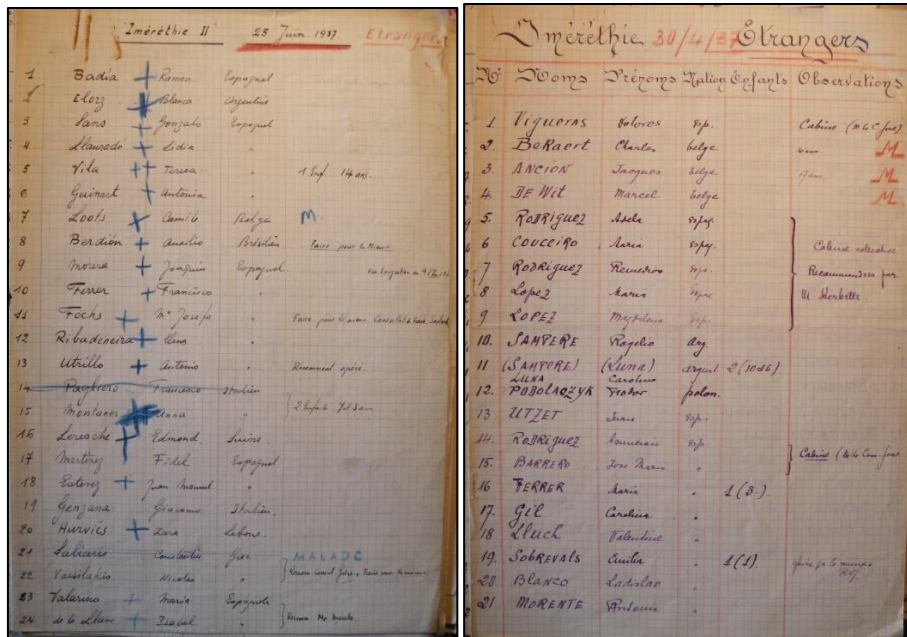 "Iméréthie II" 25 Juin 1937 Etrangers
1 Badia Ramon Espagnol
2 Elorz Blanca Argentine
3 Sans Gonzalo Espagnol
4 Llaurado Lidia "
5 Vila Teresa " 1 Enf. 14 ans.
6 Guinart Antonia "
7 Loots Camille Belge M.
8 Berdión Auxilio
9 Moura Joaquin Espagnol.
10 Ferrer Francisco "
11 Fochs Mª Josefa "
12 Ribadeneira "
13 Utrillo Antonio " Récemment opéré.
14 Pagliero Francesco Italien
15 Montaner Anna "
16 Leresche Edmond. Suisse.
17 Martinez Fidel Espagnol
18 Estevez Juan Manuel "
19 Genzana Giacomo Italien.
20 Hurvics Zara
21 Constantin Grec MALADE
22 Vassilakio Nicolas "
23 Valarino Maria Espagnole
24 de la Llave Isabel "
Iméréthie 30/4/37 Etrangers
Nº Noms Prénoms Nation Enfants Observations
1. Vigueras Dolores Esp. Cabine
2. BeKaert Charles belge M.
3. ANCION Jacques belge 17 ans M.
4. DE Wit Marcel belge M.
5. RODRIGUEZ Adela espag.
6 COUCEIRO Maria espag. Cabine
7 Rodriguez Remedios Esp. Recommandées par
8 Lopez Maria Espag M. Herbette
9 LOPEZ Magdalena Esp.
10. SAMPERE Rogelio Arg.
11 (SAMPERE) (Luna) argent 2 (10 et 6)
LUNA Carolina
12. PODOLACZYK polon.
13 UTZET Juan Esp.
14. Rodriguez Asuncion Esp
15. BARRERO Jose Maria " Cabine
16 FERRER Maria " 1 (3-)
17. Gil Carolina "
18 Lluch Valentine "
19. SOBREVALS Emilia " 1 (1).
20 Blanco Ladislao "
21 MORENTE Antonio "